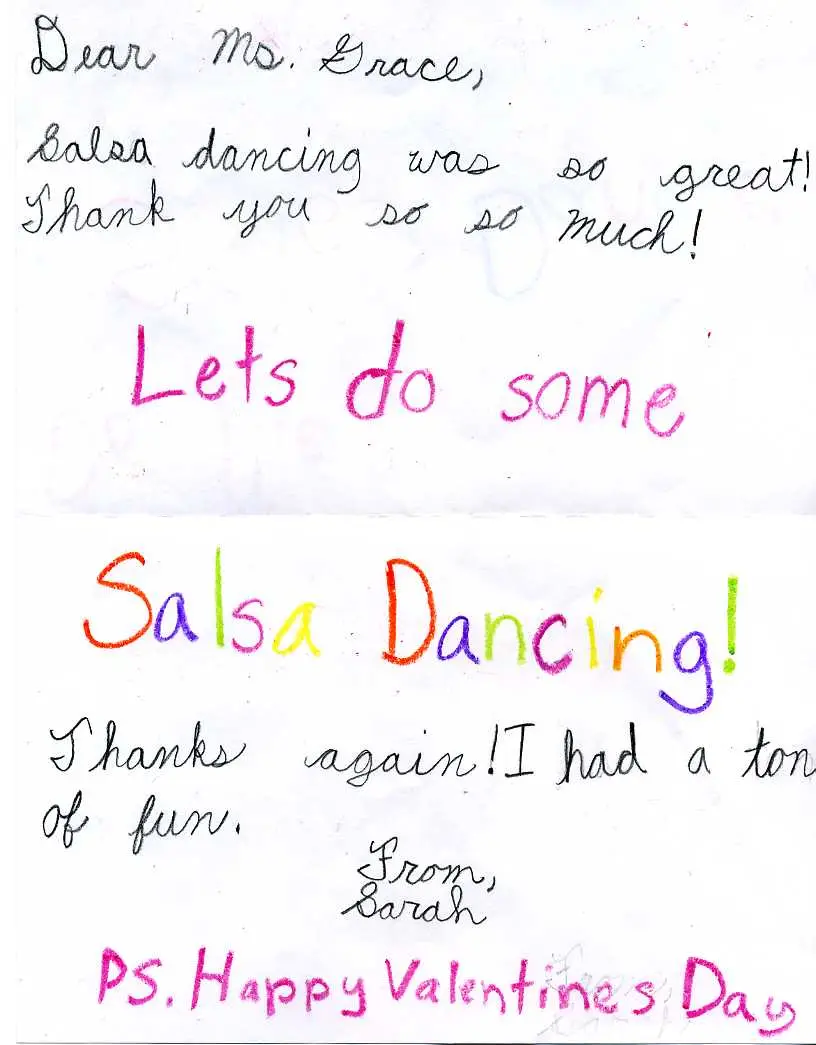 Dear Ms. Grace,
Salsa dancing was so great!
Thank you so so much!
Lets do some
Salsa Dancing!
Thanks again! I had a ton
of fun.
From,
Sarah
PS. Happy Valentines Day